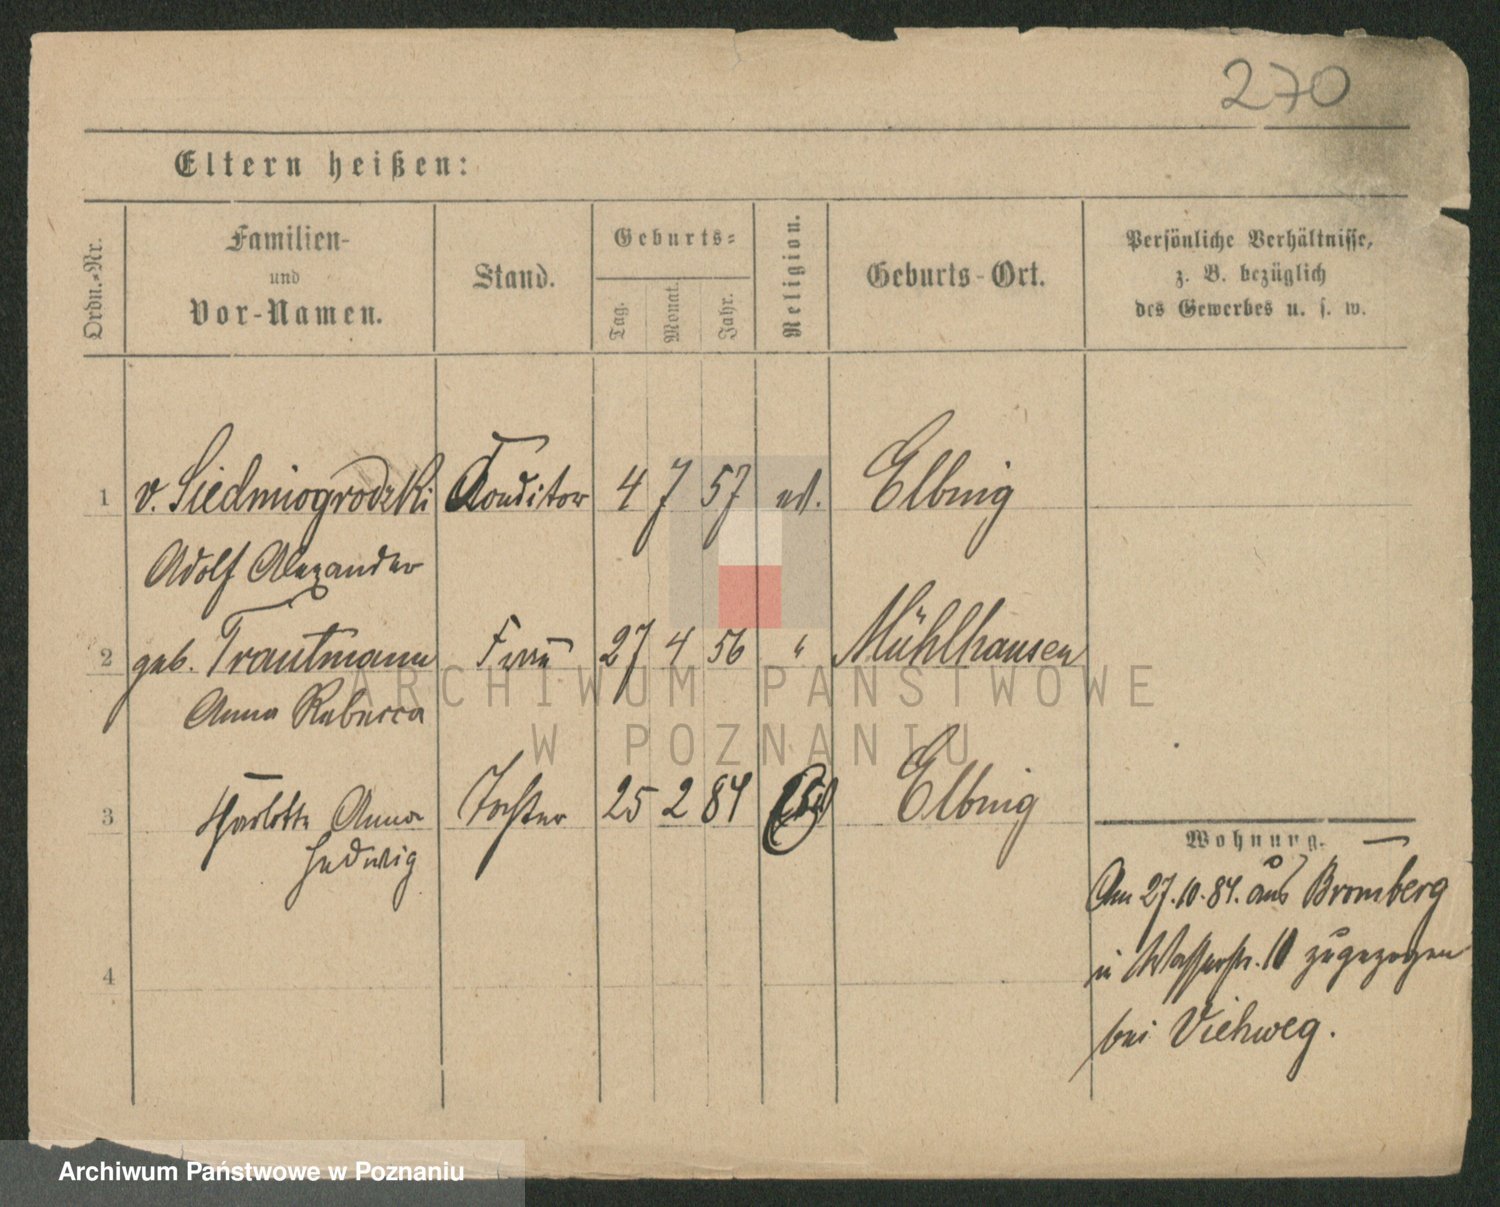 270
Eltern heißen:
Ordn.-Nr.
Familien-
und
Vor-Namen.
Stand.
Geburts-
Tag.
Monat.
Jahr.
Religion.
Geburts-Ort.
Persönliche Verhältnisse,
z. B. bezüglich
des Gewerbes u. s. w.
1 v. Siedmiogrodzki Konditor 4 7 57 ev. Elbing
Adolf Alexander
2 geb. Trautmann Frau 27 4 56 " Mühlhausen
Anna Rebecca
3 Charlotte Anna Tochter 25 2 84 Elbing
Hedwig
4
Wohnung.
Am 27.10.84. aus Bromberg
in Wasserstr. 10 zugezogen
bei Viehweg.
ARCHIWUM PAŃSTWOWE
W POZNANIU
Archiwum Państwowe w Poznaniu